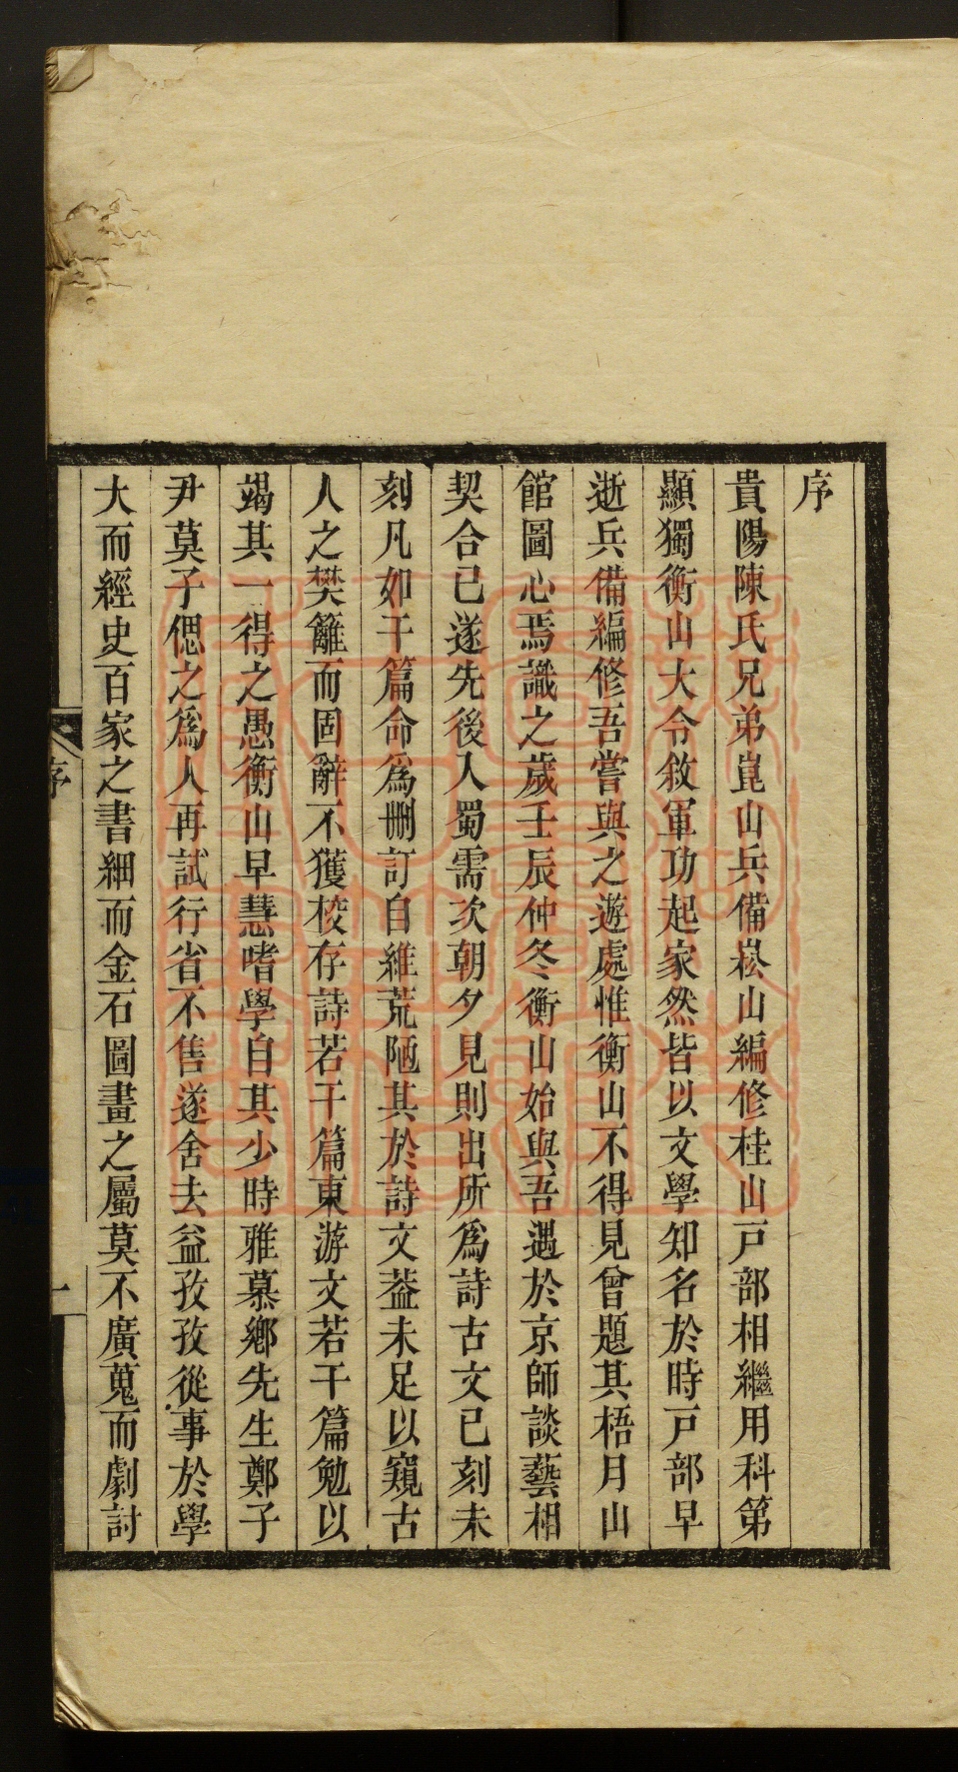 序
貴陽陳氏兄弟崑山兵備崧山編修桂山戸部相繼用科第
顯獨衡山大令敘軍功起家然皆以文學知名於時戸部早
逝兵備編修吾嘗與之遊處惟衡山不得見曾題其梧月山
館圖心焉識之歲壬辰仲冬衡山始與吾遇於京師談藝相
契合已遂先後入蜀需次朝夕見則出所爲詩古文已刻未
刻凡如干篇命爲刪訂自維荒陋其於詩文葢未足以窺古
人之樊籬而固辭不獲校存詩若干篇東游文若干篇勉以
竭其一得之愚衡山早慧嗜學自其少時雅慕鄉先生鄭子
尹莫子偲之爲人再試行省不售遂舍去益孜孜從事於學
大而經史百家之書細而金石圖畫之屬莫不廣蒐而劇討
序
一